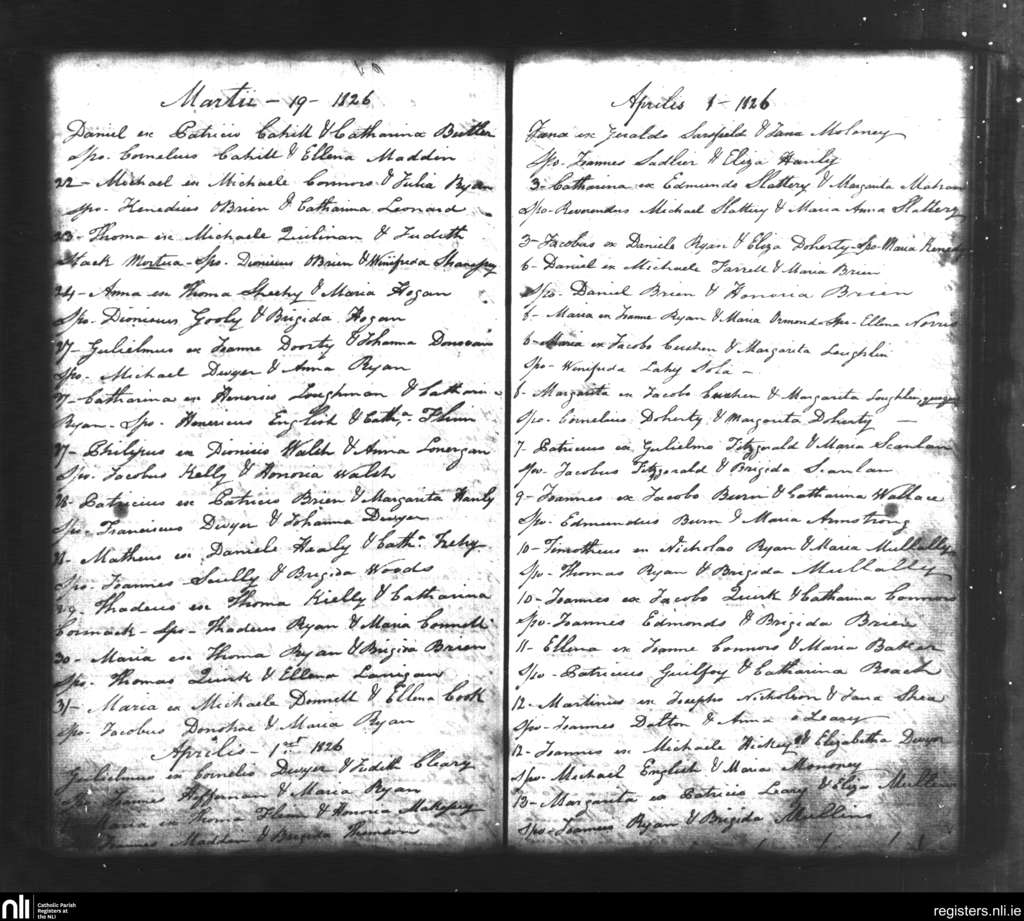 Martii - 19 - 1826
Daniel ex Patricio Cahill & Catharina Buttler
Spo. Cornelius Cahill & Ellena Madden
22 - Michael ex Michaele Connors & Julia Ryan
Spo. Kenedius OBrien & Catharina Leonard
23 - Thoma ex Michaele Quilinan & Judith
Mack Mortua - Spo. Dionisius OBrien & Winifreda
24 - Anna ex Thoma Sheehy & Maria Hogan
Spo. Dionisius Gooly & Brigida Hogan
27 - Gulielmus ex Joanne Doorty & Johanna Donovan
Spo. Michael Dwyer & Anna Ryan
27 - Catharina ex Henerico Loughman & Catharin
Ryan - Spo. Henericus English & Catha. Flinn
27 - Philipus ex Dionisio Walsh & Anna Lonergan
Spo. Jacobus Kelly & Honoria Walsh
28 - Patricius ex Patricio Brien & Margarita Hanly
Spo. Franciscus Dwyer & Johanna Dwyer
Matheus ex Daniele Healy & Cath.
Spo. Joannes Scully & Brigida Woods
29 - Thadeus ex Thoma Kielly & Catharina
Cormack - Spo - Thadeus Ryan & Maria Connell
30 - Maria ex Thoma Ryan & Brigida Brien
Spo. Thomas Quirk & Ellena Lanigan
31 - Maria ex Michaele Donnell & Ellena Cook
Spo. Jacobus Donohoe & Maria Ryan
Aprilis - 1st 1826
Gulielmus ex Cornelio Dwyer & Judith Cleary
Spo. Joannes Heffernan & Maria Ryan
Maria ex Thoma Flinn & Honoria
Joannes Madden & Brigida
Aprilis 1 - 1826
Jana ex Geraldo Sarsfield & Jana Moloney
Spo. Joannes Sadlier & Eliza Hanly
3 - Catharina ex Edmundo Slattery & Margarita
Spo - Reverendus Michael Slattery & Maria Anna Slattery
3 - Jacobus ex Daniele Ryan & Eliza Doherty - Spo - Maria Kenedy
6 - Daniel ex Michaele Farrell & Maria Brien
Spo. Daniel Brien & Honoria Brien
6 - Maria ex Joanne Ryan & Maria Ormond - Spo - Ellena Norris
6 - Maria ex Jacobo Cushen & Margarita Loughlin
Spo - Winifreda Lahy Sola -
6 - Margarita ex Jacobo Cushen & Margarita Loughlin
Spo - Cornelius Doherty & Margarita Doherty -
7 - Patricius ex Gulielmo Fitzgerald & Maria Scanlan
Spo. Jacobus Fitzgerald & Brigida Scanlan
9 - Joannes ex Jacobo Burn & Catharina Wallace
Spo - Edmundus Burn & Maria Armstrong
10 - Timotheus ex Nicholao Ryan & Maria Mullally
Spo - Thomas Ryan & Brigida Mullalley
10 - Joannes ex Jacobo Quirk & Catharina Connors
Spo - Joannes Edmonds & Brigida Brien
11 - Ellena ex Joanne Connors & Maria
Spo - Patricius Guilfoy & Catharina Roach
12 - Martinius ex Josepho Nicholson & Jana Shea
Spo - Joannes Dalton & Anna o Leary
12 - Joannes ex Michaele Hickey & Elizabetha Dwyer
Spo - Michael English & Maria Mononey
13 - Margarita ex Patricio Leary & Eliza Mullins
Spo - Joannes Ryan & Brigida Mullins
nli
Catholic Parish
Registers at
the NLI
registers.nli.ie